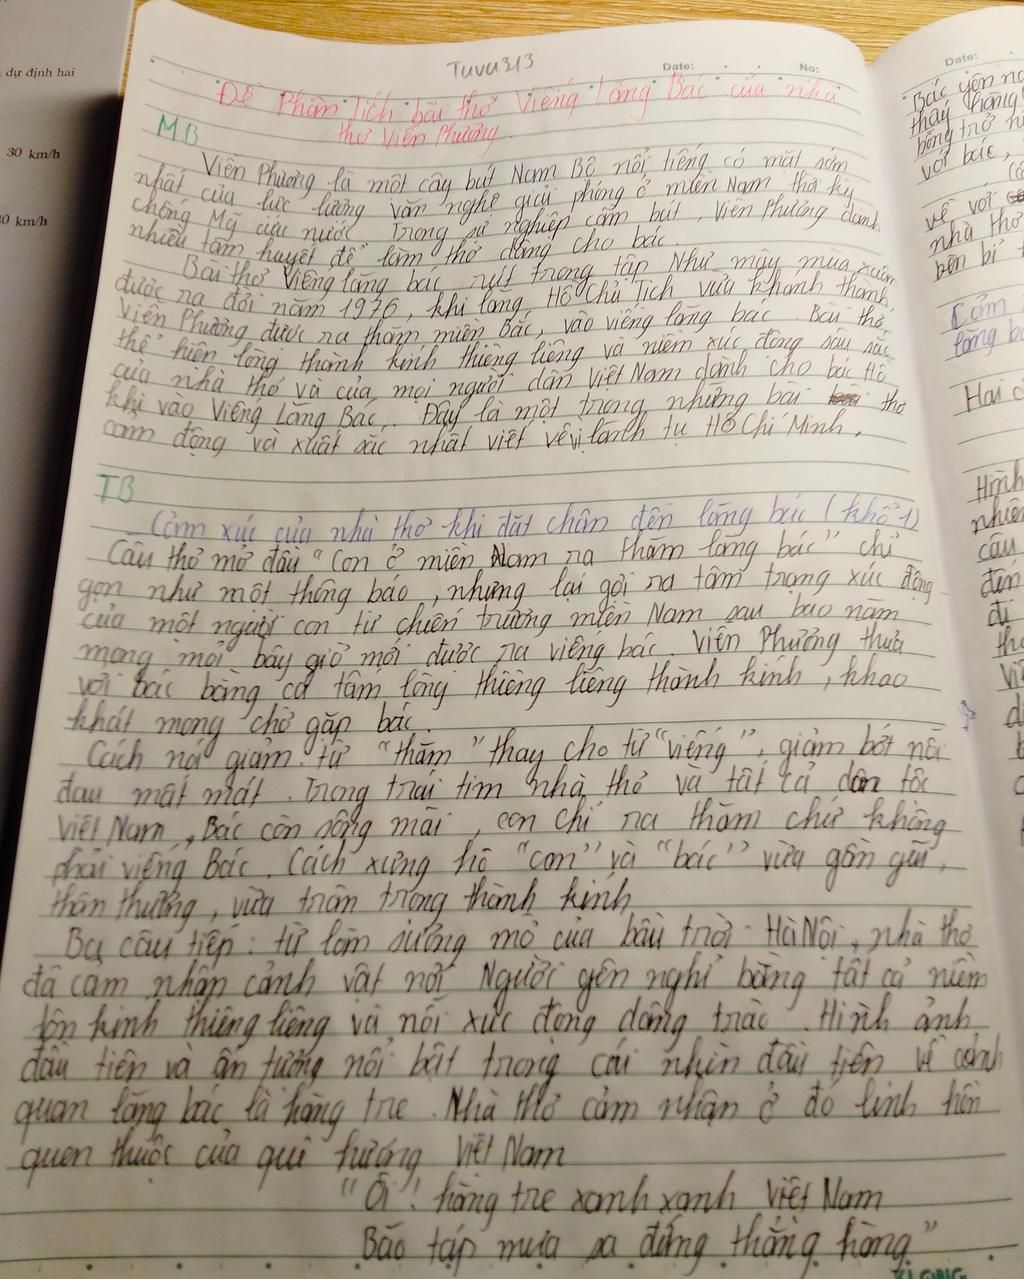 dự định hai
30 km/h
0 km/h
Tuvu313
Date: . . No:
Đề Phân Tích bài thơ Viếng Lăng Bác của nhà
thơ Viễn Phương.
MB
Viễn Phương là một cây bút Nam Bộ nổi tiếng có mặt sớm
nhất của lực lượng văn nghệ giải phóng ở miền Nam thời kỳ
chống Mỹ cứu nước. Trong sự nghiệp cầm bút, Viễn Phương dành
nhiều tâm huyết để làm thơ dâng cho bác.
Bài thơ Viếng lăng bác rút trong tập Như mây mùa xuân
được ra đời năm 1976, khi lăng Hồ Chủ Tịch vừa khánh thành,
Viễn Phương được ra thăm miền Bắc, vào viếng lăng bác. Bài thơ
thể hiện lòng thành kính thiêng liêng và niềm xúc động sâu sắc
của nhà thơ và của mọi người dân Việt Nam dành cho bác Hồ
khi vào Viếng Lăng Bác. Đây là một trong những bài thơ
cảm động và xuất sắc nhất viết về vị lãnh tụ Hồ Chí Minh.
TB
Cảm xúc của nhà thơ khi đặt chân đến lăng bác (khổ 1)
Câu thơ mở đầu "Con ở miền Nam ra thăm lăng bác" chỉ
gọn như một thông báo, nhưng lại gợi ra tâm trạng xúc động
của một người con từ chiến trường miền Nam sau bao năm
mong mỏi bây giờ mới được ra viếng bác. Viễn Phương thưa
với bác bằng cả tấm lòng thiêng liêng thành kính, khao
khát mong chờ gặp bác.
Cách nói giảm: từ "thăm" thay cho từ "viếng", giảm bớt nỗi
đau mất mát. Trong trái tim nhà thơ và tất cả dân tộc
Việt Nam, Bác còn sống mãi, con chỉ ra thăm chứ không
phải viếng Bác. Cách xưng hô "con" và "bác" vừa gần gũi,
thân thương, vừa trân trọng thành kính
Ba câu tiếp: từ làn sương mờ của bầu trời Hà Nội, nhà thơ
đã cảm nhận cảnh vật nơi Người yên nghỉ bằng tất cả niềm
tôn kính thiêng liêng và nỗi xúc động dâng trào. Hình ảnh
đầu tiên và ấn tượng nổi bật trong cái nhìn đầu tiên về cảnh
quan lăng bác là hàng tre. Nhà thơ cảm nhận ở đó linh hồn
quen thuộc của quê hương Việt Nam
"Ôi! hàng tre xanh xanh Việt Nam
Bão táp mưa sa đứng thẳng hàng"
Date:
Bác yên n
thay hàng
bỗng trở
với bác,
về với
nhà thơ
bền bỉ
Cảm
lăng b
Hai c
Hình
nhiên
câu
đến
đi